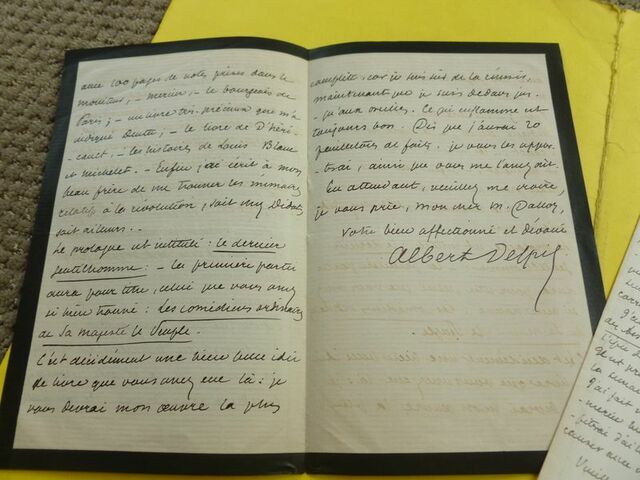 avec 100 pages de notes prises dans le
moniteur, – mercier, – le bourgeois de
Paris; – un livre très-précieux que m'a
indiqué Dentu, – le livre de D'Héri-
-cault, – les histoires de Louis Blanc
et michelet. – Enfin j'ai écrit à mon
beau frère de me trouver les mémoires
relatifs à la révolution, soit chez Didot,
soit ailleurs. –
Le prologue est intitulé: le dernier
gentilhomme: – La première partie
aura pour titre, celui que vous avez
si bien trouvé: Les comédiens ordinaires
de Sa majesté le Peuple.
C'est décidément une bien belle idée
de livre que vous avez eue là: je
vous devrai mon œuvre la plus
complète, car je suis sûr de la réussir,
maintenant que je suis dedans jus-
-qu'aux oreilles. Ce qui enflamme est
toujours bon. Dès que j'aurai 20
feuilletons de faits, je vous les appor-
-terai, ainsi que vous me l'avez dit.
En attendant, veuillez me croire,
je vous prie, mon cher M. Dalloz,
votre bien affectionné et dévoué
Albert Delpit